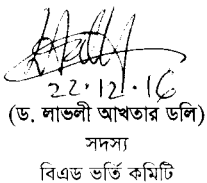 22.12.16
(ড. লাভলী আখতার ডলি)
সদস্য
বিএড ভর্তি কমিটি